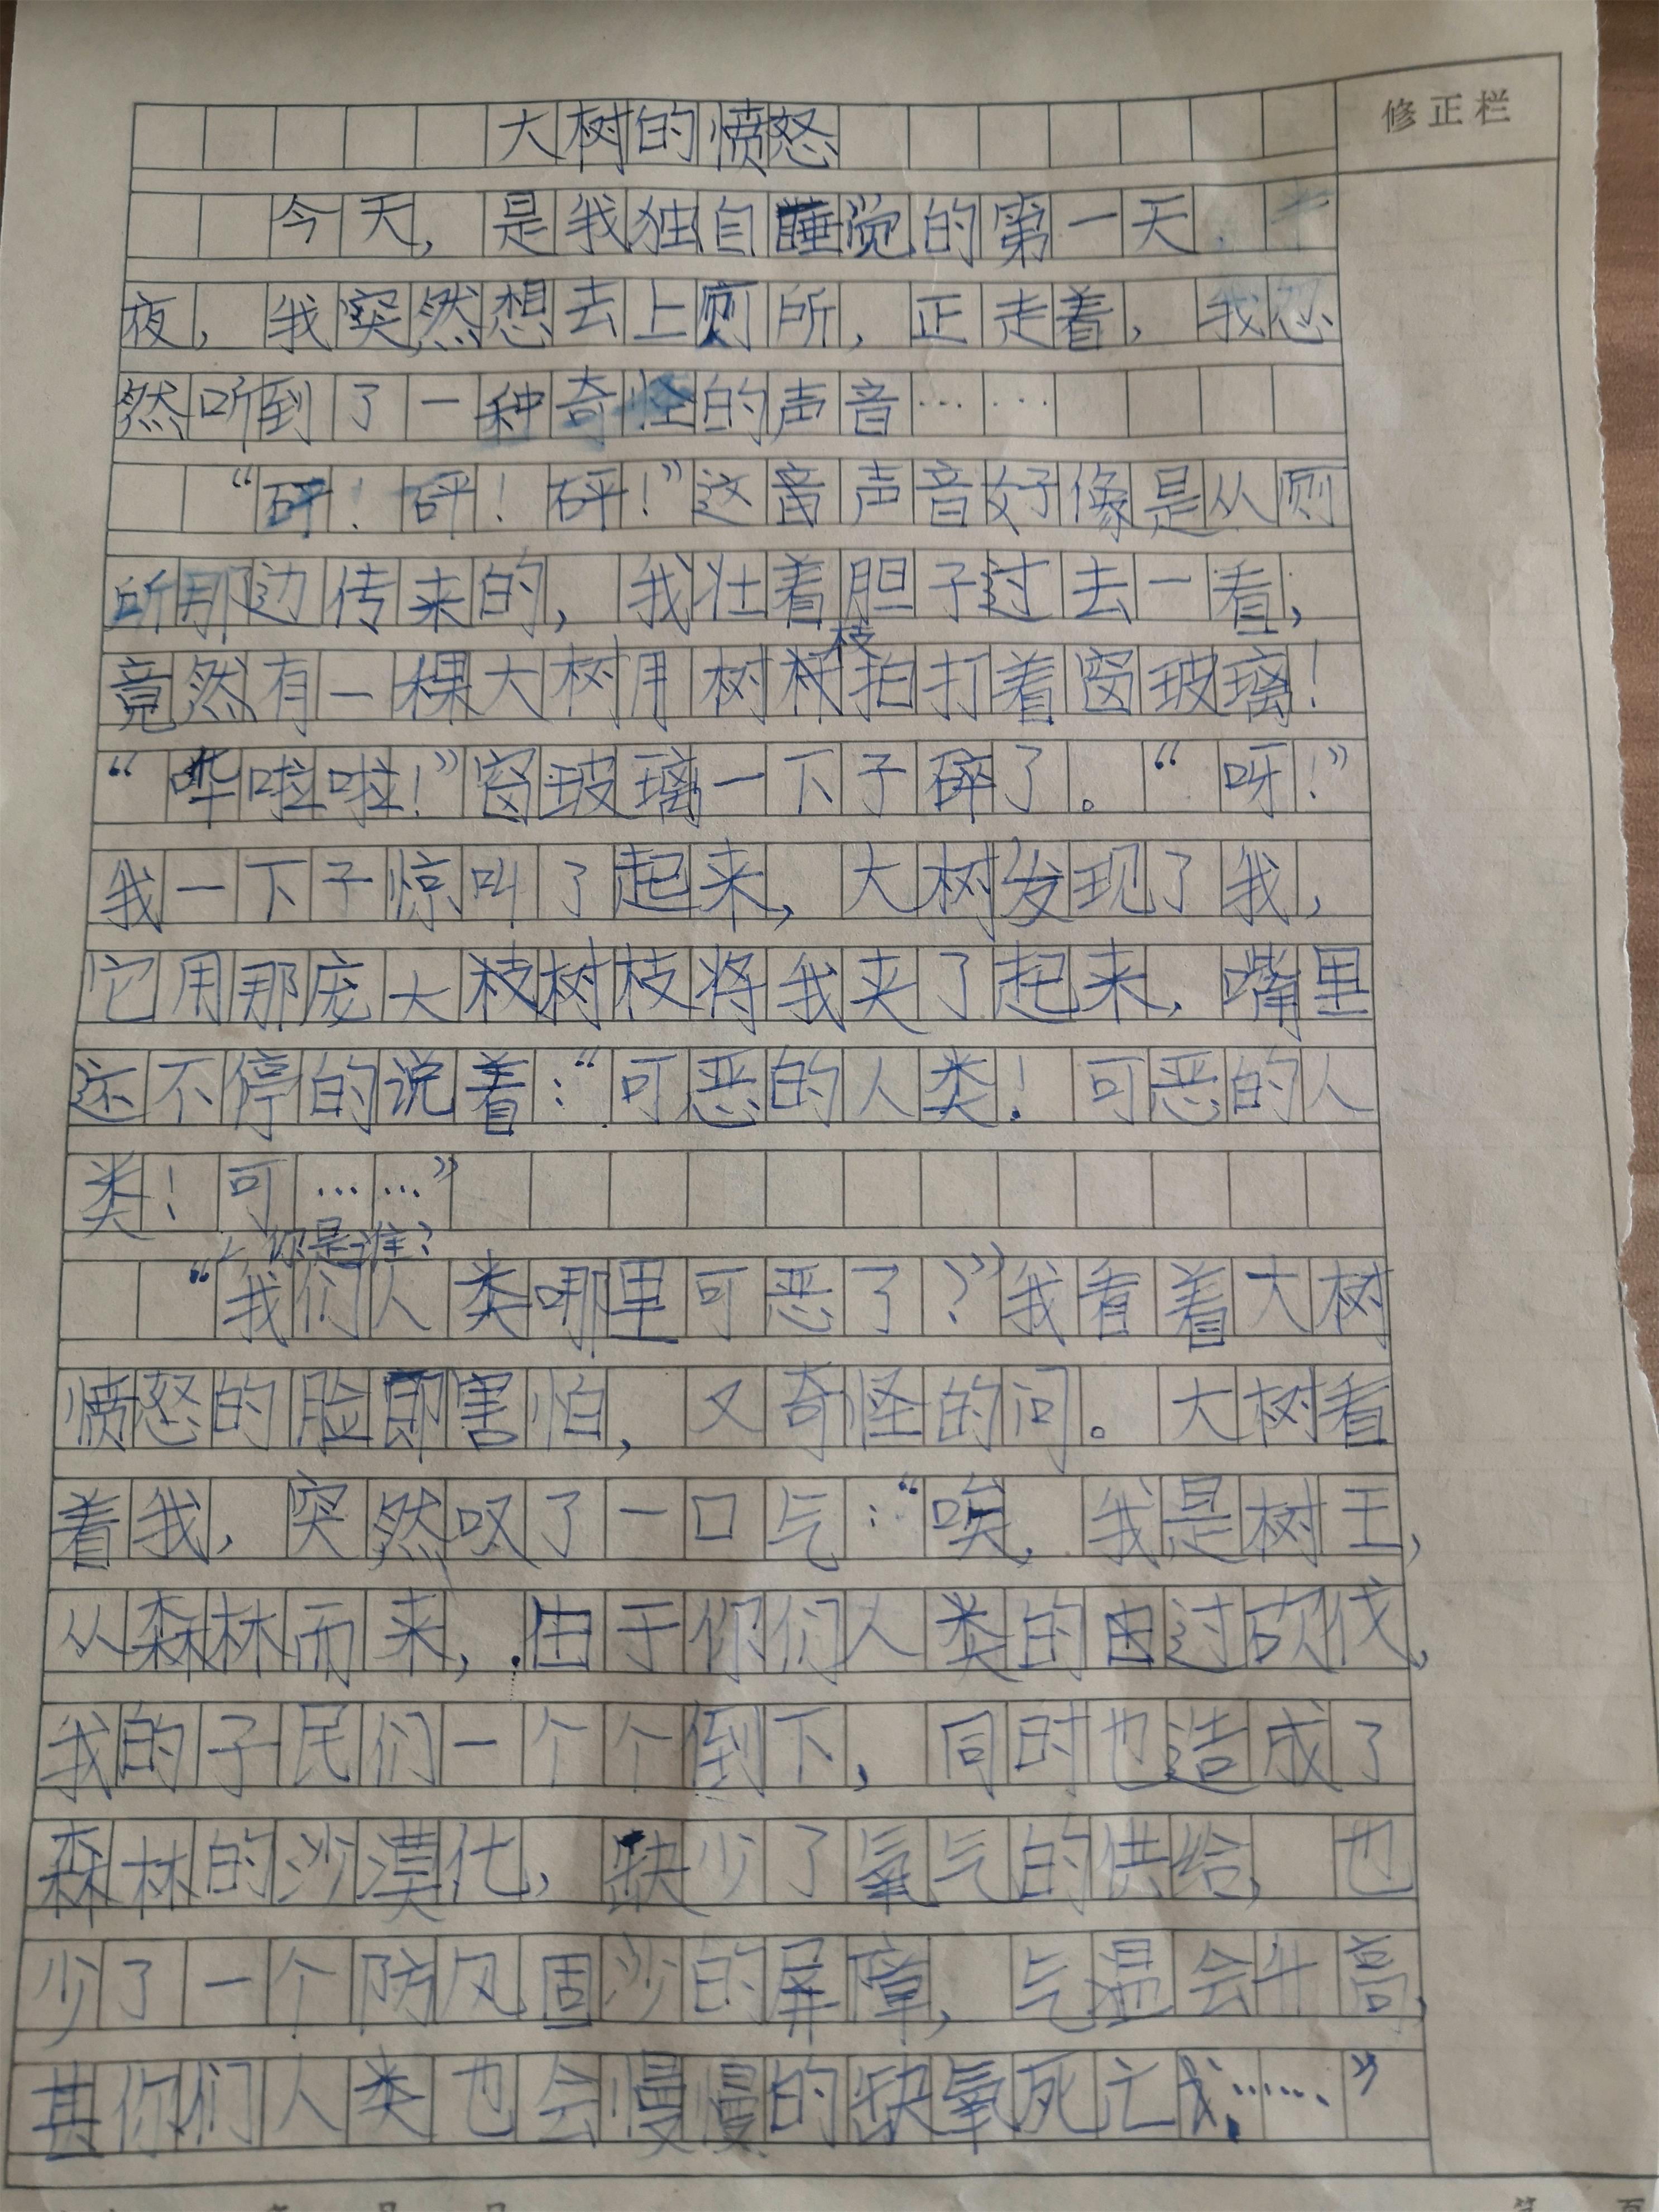 修正栏
大树的愤怒
今天，是我独自睡觉的第一天，半
夜，我突然想去上厕所，正走着，我忽
然听到了一种奇怪的声音……
“砰！砰！砰！”这音声音好像是从厕
所那边传来的，我壮着胆子过去一看，
竟然有一棵大树用树枝拍打着窗玻璃！
“哗啦啦！”窗玻璃一下子碎了。“呀！”
我一下子惊叫了起来，大树发现了我，
它用那庞大枝树枝将我夹了起来，嘴里
还不停的说着：“可恶的人类！可恶的人
类！可……”
你是谁？
“我们人类哪里可恶了？”我看着大树
愤怒的脸即害怕，又奇怪的问。大树看
着我，突然叹了一口气：“唉，我是树王，
从森林而来，由于你们人类的由过砍伐，
我的子民们一个个倒下，同时也造成了
森林的沙漠化，缺少了氧气的供给，也
少了一个防风固沙的屏障，气温会升高，
其你们人类也会慢慢的缺氧死亡……”